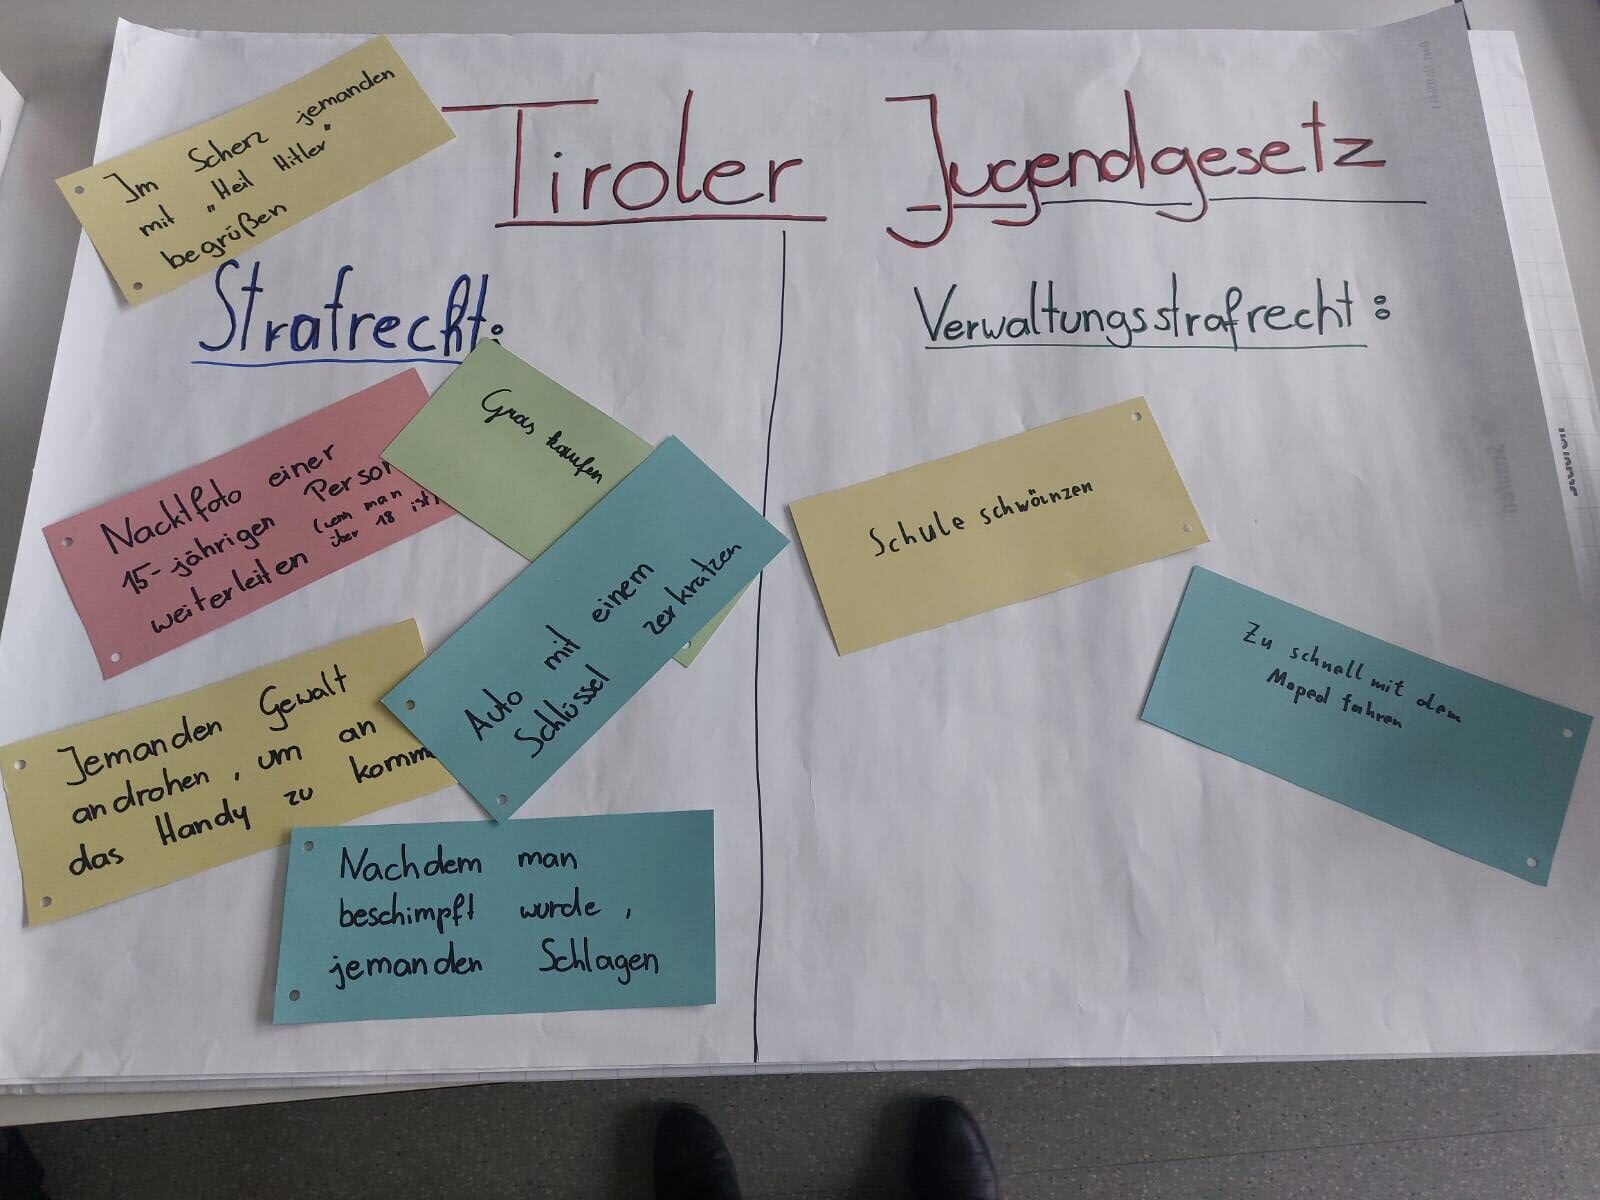 Tiroler Jugendgesetz
Im Scherz jemanden
mit "Heil Hitler"
begrüßen
Strafrecht:
Nacktfoto einer
15-jährigen Person
weiterleiten (wenn man
über 18 ist)
Gras kaufen
Auto mit einem
Schlüssel zerkratzen
Jemanden Gewalt
androhen, um an
das Handy zu komm
Nachdem man
beschimpft wurde,
jemanden Schlagen
Verwaltungsstrafrecht:
Schule schwänzen
Zu schnell mit dem
Moped fahren